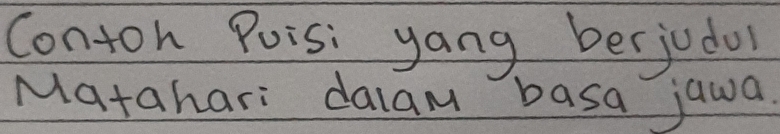 Contoh Puisi yang berjudul
Matahari dalam basa jawa.